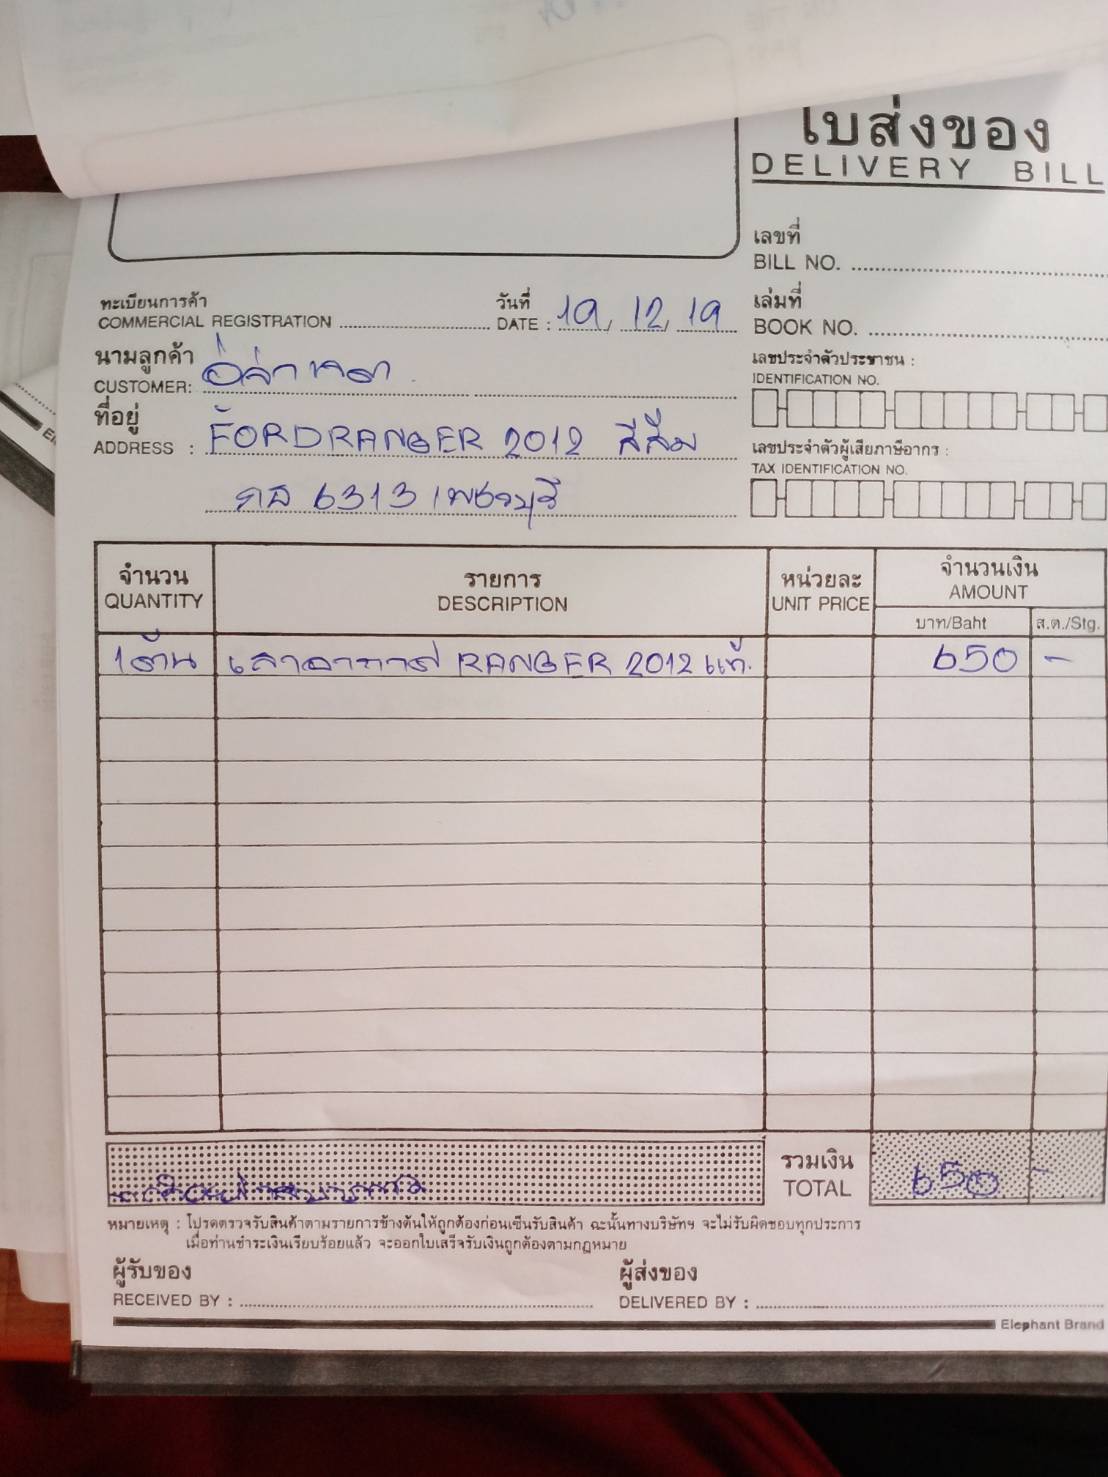 ใบส่งของ
DELIVERY BILL
เลขที่
BILL NO.
ทะเบียนการค้า
COMMERCIAL REGISTRATION
วันที่
DATE : 19, 12, 19
เล่มที่
BOOK NO.
นามลูกค้า
CUSTOMER:
เลขประจำตัวประชาชน :
IDENTIFICATION NO.
ที่อยู่
ADDRESS : FORD RANGER 2012 สีส้ม
เลขประจำตัวผู้เสียภาษีอากร :
TAX IDENTIFICATION NO.
6313 เพชรบุรี
จำนวน
QUANTITY
รายการ
DESCRIPTION
หน่วยละ
UNIT PRICE
จำนวนเงิน
AMOUNT
บาท/Baht ส.ต./Stg.
1 เสาอากาศ RANGER 2012 แท้. 650 -
รวมเงิน
TOTAL 650 -
หมายเหตุ : โปรดตรวจรับสินค้าตามรายการข้างต้นให้ถูกต้องก่อนเซ็นรับสินค้า ฉะนั้นทางบริษัทฯ จะไม่รับผิดชอบทุกประการ
เมื่อท่านชำระเงินเรียบร้อยแล้ว จะออกใบเสร็จรับเงินถูกต้องตามกฎหมาย
ผู้รับของ
RECEIVED BY :
ผู้ส่งของ
DELIVERED BY :
Elephant Brand